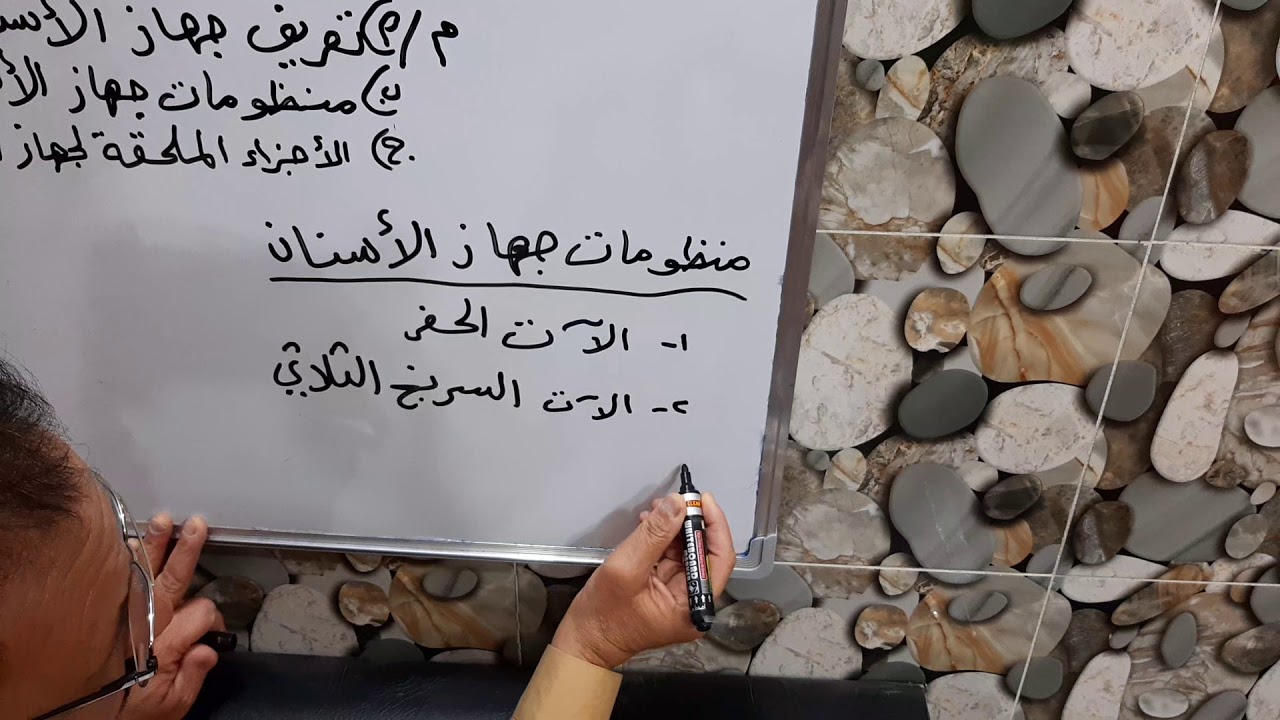 م/ أ) تعريف جهاز الأسنـ
ب) منظومات جهاز الأ
ج) الأجزاء الملحقة لجهاز
منظومات جهاز الأسنان
١- الآت الحفر
٢- الآت السرنج الثلاثي
WHITEBOARD